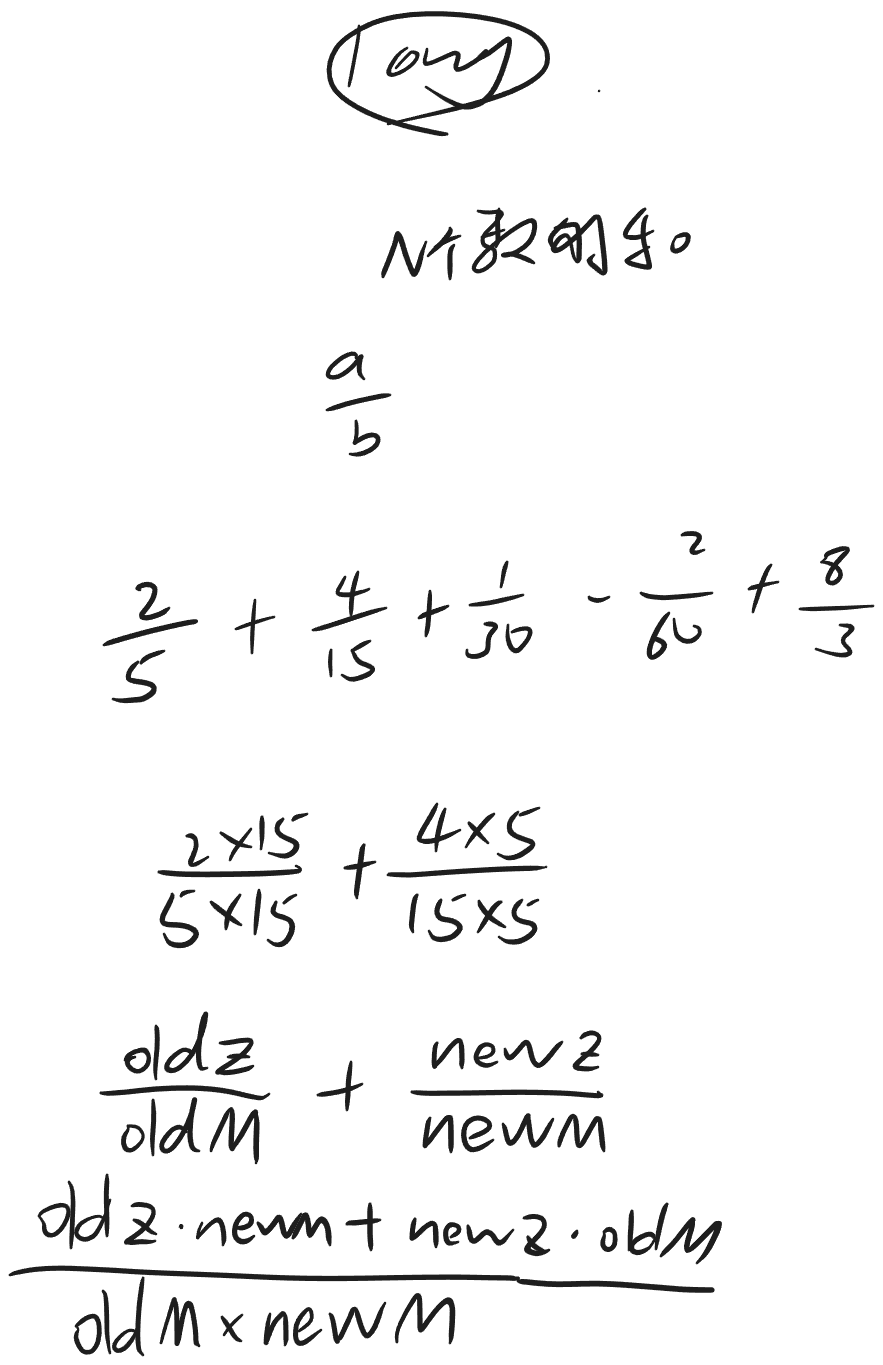 long
N个数的
a
b
2/5 + 4/15 + 1/30 - 2/60 + 8/3
2×15/5×15 + 4×5/15×5
oldz/oldM + newz/newM
oldz·newm + newz·oldM
oldM × newM